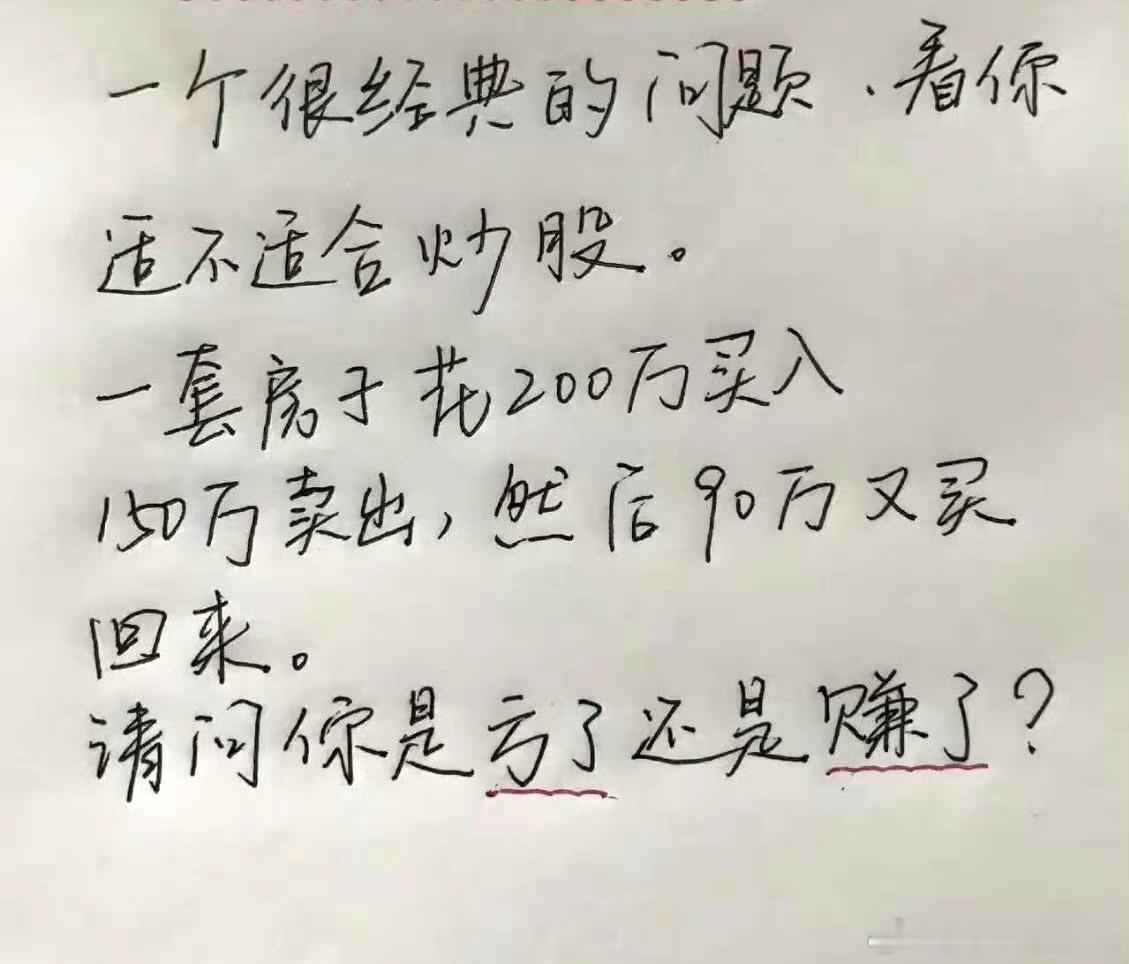 一个很经典的问题、看你
适不适合炒股。
一套房子花200万买入
150万卖出,然后90万又买
回来。
请问你是亏了还是赚了?